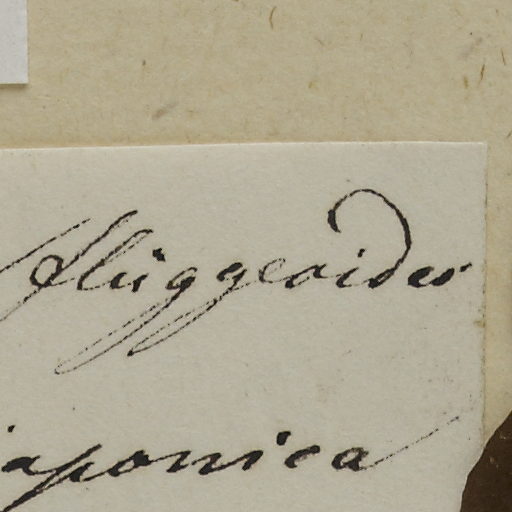 flüggeoides
japonica